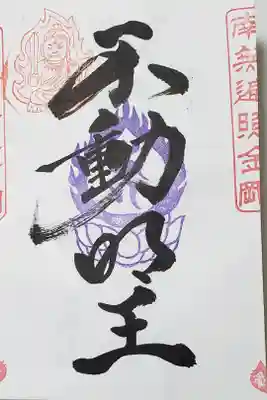 南無遍照金剛
不動明王